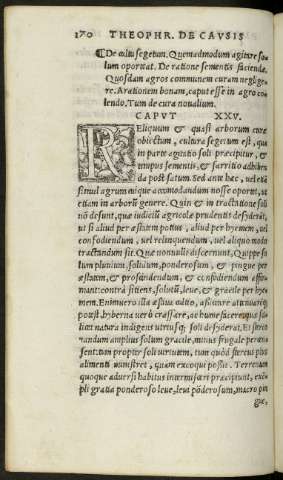 170 THEOPHR. DE CAVSIS
¶De cultu segetum. Quemadmodum agitare solum oporteat. De ratione sementis faciendæ.
Quosdam agros communem curam negligere. Arationem bonam, caput esse in agro colendo. Tum de cura novalium.
CAPVT XXV.
Reliquum & quasi arborum curæ
obiectum, cultura segetum est, quæ
in parte agestio soli præcipitur, &
tempus sementis, & sarritio adhibenda post satum. Sed ante hæc, uel exā
simul agrum cuique accomodandum nosse oportet, ut
etiam in arborū genere. Quin & in tractatione soli
nō desunt, quæ iudiciū agricolæ prudentis desyderāt,
ut si aliud per æstatem potius, aliud per hyemem, uel
confodiendum, uel relinquendum, uel aliquo modo
tractandum sit. Quæ nonnulli discernunt. Quippe solum pluuium, solidum, ponderosum, & pingue per
æstatem, & proscindendum, & confodiendum affirmant: contrà sitiens, solutū, leue, & gracile per hyemem. Enimuero illa æstiua
potest, hyberna uerò crassare, ac humefacere:
natura indigens utrunque soli desyderat.
amplius solum gracile, minus frugale
tum propter soli
alimenti ministret, quàm excoqui possit. Terrenum
quoque aduersi habitus intermisceri præcipiunt,
gratia ponderoso leue, leui pōderosum, macro pin
gue,